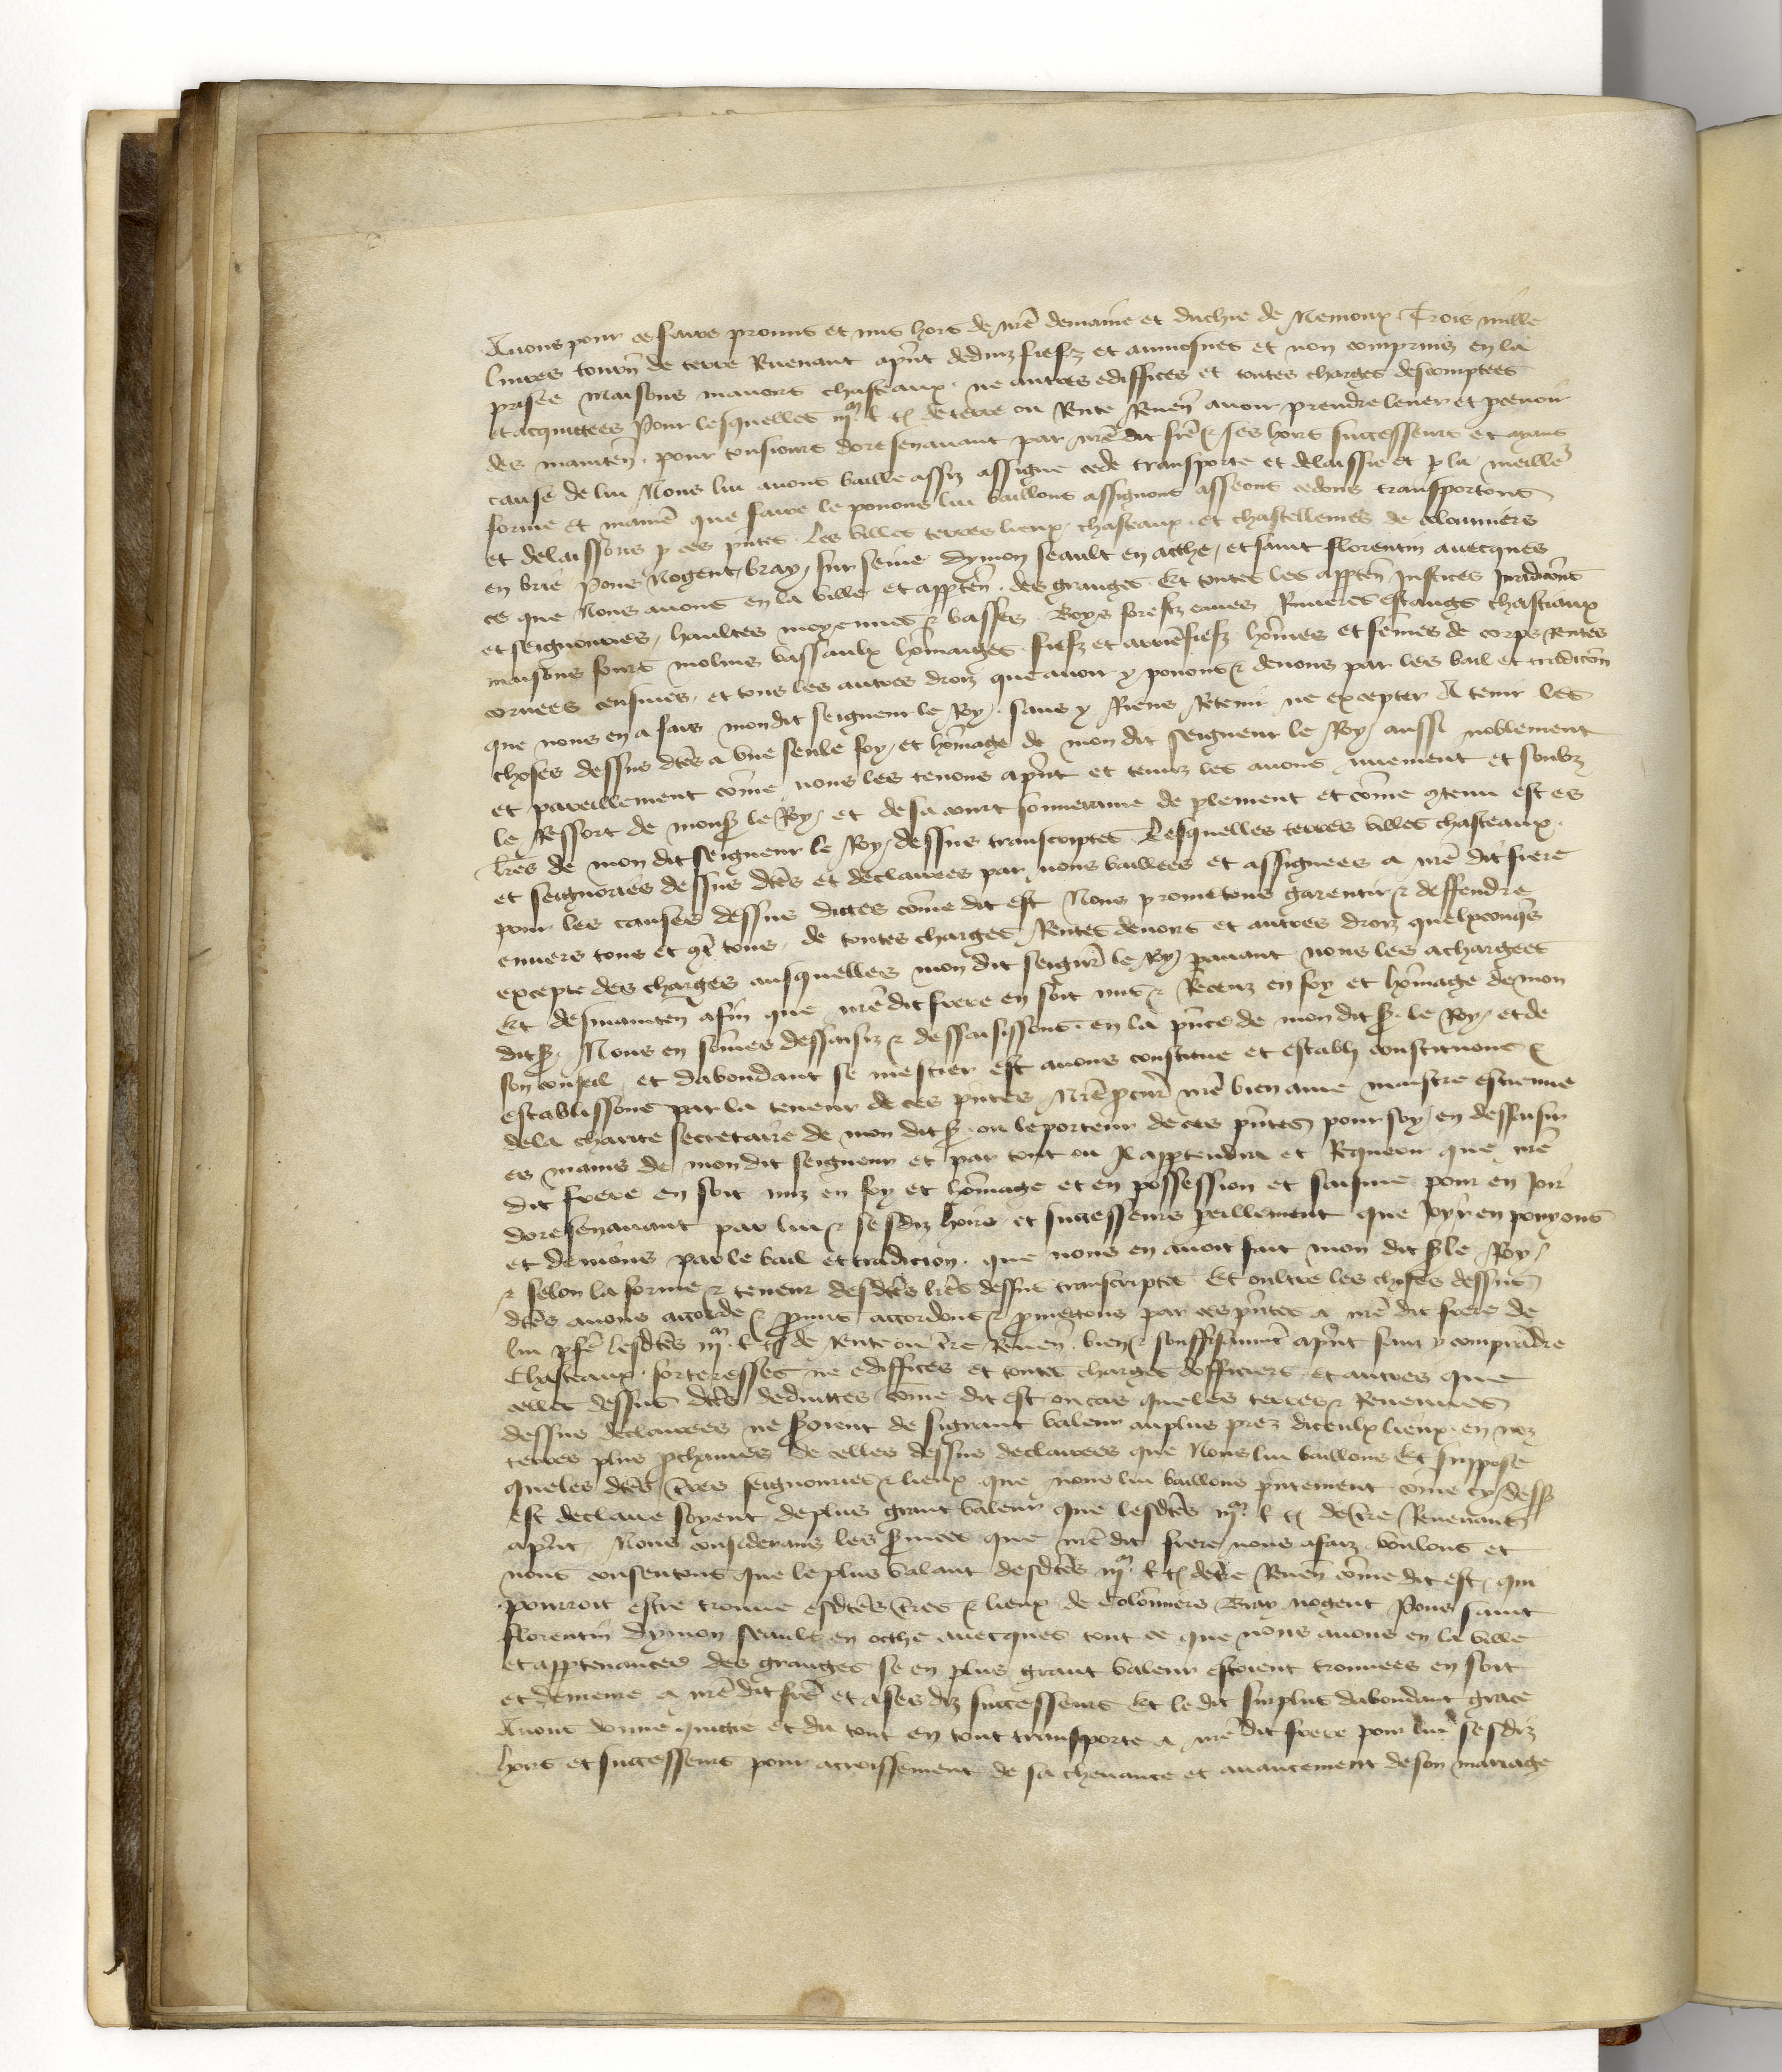 Auons pour ce faire promis et mis hors de nr̃e demaine et duchie de Nemoux Trois mille
liures tourñ de terre Reuenant ap̃nt dedinz fiefz et aumosnes et non comprins en la
prisee maisons manoirs chasteaux ne autres ediffices et toutes charges descomptees
et acquittees Pour lesquelles iijᵐ l tꝭ de terre ou Rente Reueñ auoir prendre leuer et pceuoir
des mainteñ pour tousiours doresenauant par nr̃e dit fr̃e ⁊ ses hoirs successeurs et ayans
cause de lui Nous lui auons baille assiz assigne cede transporte et delaissie et p la meille
forme et maniẽ que faire le pouons lui baillons assignons asseons cedons transportons
et delaissons p ces p̃ntes les villes terres lieux chasteaux et chastellenies de colomiers
en brie Pons Nogent bray sur seine dymon seault en octhe et saint florentin auecques
ce que Nous auons en la ville et apptẽn des granges Et toutes les apptẽn Justices Juridicõns
et seignouries haultes moyennes ⁊ basses Boys forestz eaues Riuieres estangs chastiaux
maisons fours molins vassaulx hõmaiges fiefz et arriẽfiefz hõmes et fẽmes de corps Rentes
coruees censiues et tous les autres droiz que auoir y pouons ⁊ deuons par les bail et tradicõn
que nous en a fais mondit seigneur le Roy sans y Riens Retenir ne excepter A tenir les
choses dessus dc̃es a vne seule foy et hõmage de mon dit seigneur le Roy aussi noblement
et pareillement cõme nous les tenons ap̃nt et tenuz les auons nuement et soubz
le Ressort de monsʳ le Roy et de sa court souueraine de plement et cõme ꝯtenu est es
lr̃es de mon dit seigneur le Roy dessus transcriptes Lesquelles terres villes chasteaux
et seignories dessus dc̃es et declairees par nous baillees et assignees a nr̃e dit frere
pour les causes dessus dictes cõme dit est Nous prometons garentir ⁊ deffendre
enuers tous et ꝯt̃ tous de toutes charges Rentes deuoirs et autres droiz quelxconq̃s
excepte des charges ausquelles mon dit seignr̃ le Roy pauant nous les a chargees
Et desmainteñ afin que nr̃e dit frere en soit mis ⁊ Receuz en foy et hõmage de mon
dit sʳ Nous en sõmes dessaisiz ⁊ dessaisissons en la p̃nce de mon dit sʳ le Roy et de
son conseil et dabondant se mestier est auons constitue et establi constituons ⁊
establissons par la teneur de ces p̃ntes Nr̃e pcur̃ nr̃e bien ame maistre estienne
de la charite secretaire de mon dit sʳ ou le porteur de ces p̃ntes pour soy en dessaisir
es mains de mondit seigneur et par tout ou Il apptendra et Requerir que nr̃e
dit frere en soit miz en foy et hõmage et en possession et saisine pour en Joir
doresenauant par lui ⁊ sesdiz hoirs et successeurs peillement que Joyr en pouyons
et deuions par le bail et tradicion que nous en auoit fait mon dit sʳ le Roy
⁊ selon la forme ⁊ teneur desdc̃es lr̃es dessus transcriptes Et oultre les choses dessus
dc̃es auons accorde ⁊ pmis accordons ⁊ pmettons par ces p̃ntes a nr̃e dit frere de
lui pfẽ lesdc̃es iijᵐ l tꝭ de Rente ou t̃re Reueñ bien ⁊ souffisaumẽt ap̃nt sanz y comprãdre
Chasteaux forteresses ne ediffices et toutes charges dofficiers et autres que
celles dessus dc̃es deduittes cõme dit est ou cas que les terres ⁊ Reuenues
dessus declairees ne seroient de si grant valeur au plus prez diceulx lieux en noz
terres plus pchaines de celles dessus declairees que Nous lui baillons Et suppose
que les dc̃es t̃res seignouries ⁊ lieux que nous lui baillons p̃ntement cõme cy dessꝰ
est declaire soyent de plus grant valeur que lesdc̃es iijᵐ l tꝭ de t̃re Reuenant
ap̃nt Nous considerans les s̃uices que nr̃e dit frere nous a faiz voulons et
nous consentons que le plus valant desdc̃es iijᵐ l tꝭ de t̃re Reueñ cõme dit est qui
pourroit estre trouue esdc̃es t̃res ⁊ lieux de Colõmiers Bray nogent Pons saint
florentin dymon seault en octhe auecques tout ce que nous auons en la ville
et apptenances des granges se en plus grant valeur estoient trouuees en soit
et demeure a nr̃e dit fr̃e et a ses diz successeurs Et le dit surplus dabondant grace
Auons donne quitie et du tout en tout transporte a nr̃e dit frere pour lui ⁊ sesdiz
hoirs et successeurs pour acroissement de sa cheuance et auancement de son mariage